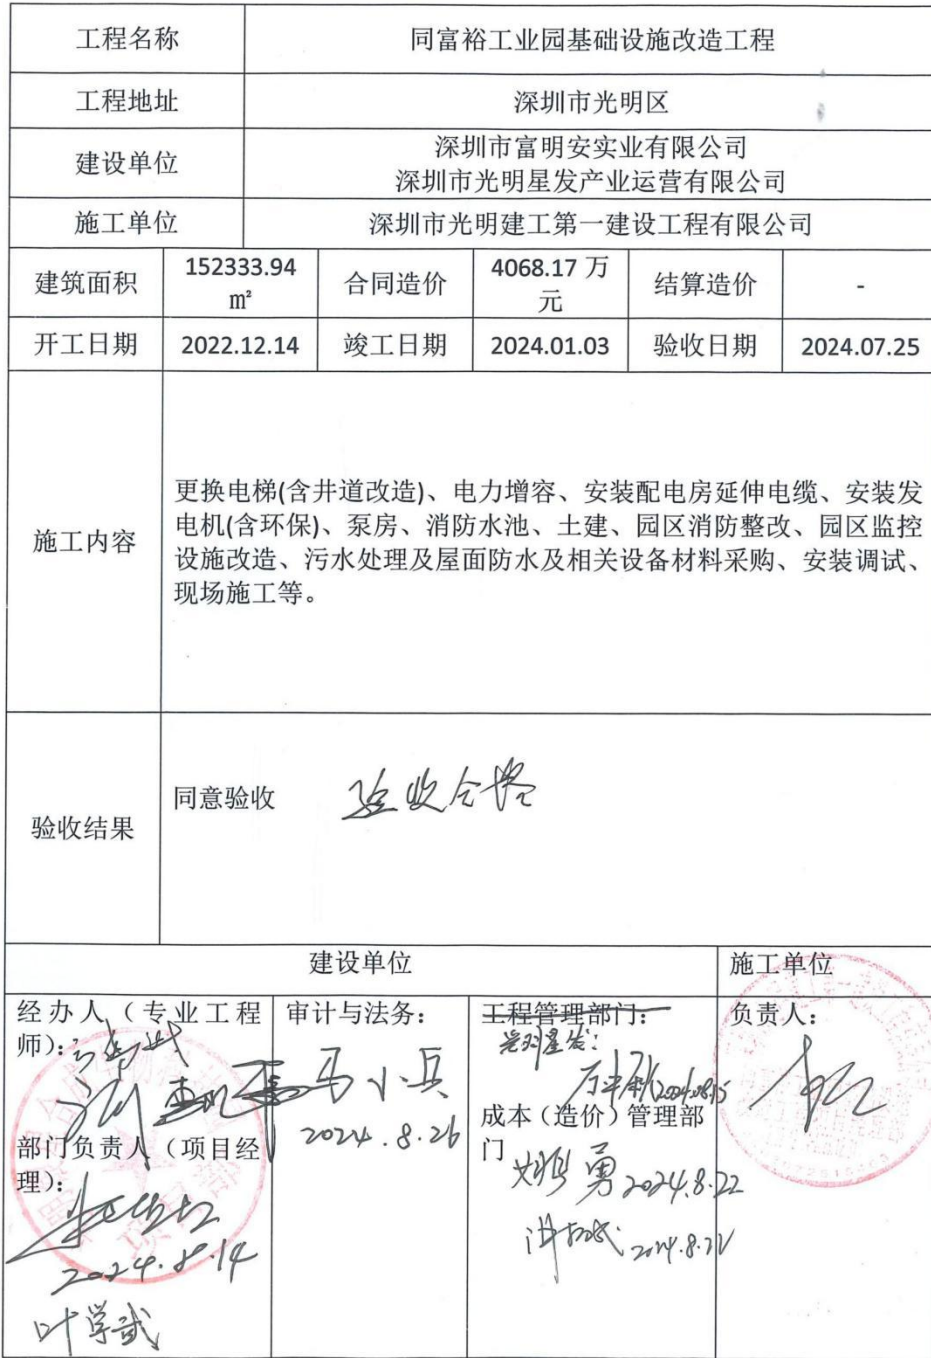 工程名称 同富裕工业园基础设施改造工程
工程地址 深圳市光明区
建设单位 深圳市富明安实业有限公司
深圳市光明星发产业运营有限公司
施工单位 深圳市光明建工第一建设工程有限公司
建筑面积 152333.94 m² 合同造价 4068.17 万元 结算造价 -
开工日期 2022.12.14 竣工日期 2024.01.03 验收日期 2024.07.25
施工内容
更换电梯(含井道改造)、电力增容、安装配电房延伸电缆、安装发
电机(含环保)、泵房、消防水池、土建、园区消防整改、园区监控
设施改造、污水处理及屋面防水及相关设备材料采购、安装调试、
现场施工等。
验收结果
同意验收 验收合格
建设单位 施工单位
经办人（专业工程
师）：
部门负责人（项目经
理）：
2024.8.14
叶学武
审计与法务：
马小兵
2024.8.26
工程管理部门：
光明星发：
2024.08.15
成本（造价）管理部
门
勇 2024.8.22
2024.8.22
负责人：